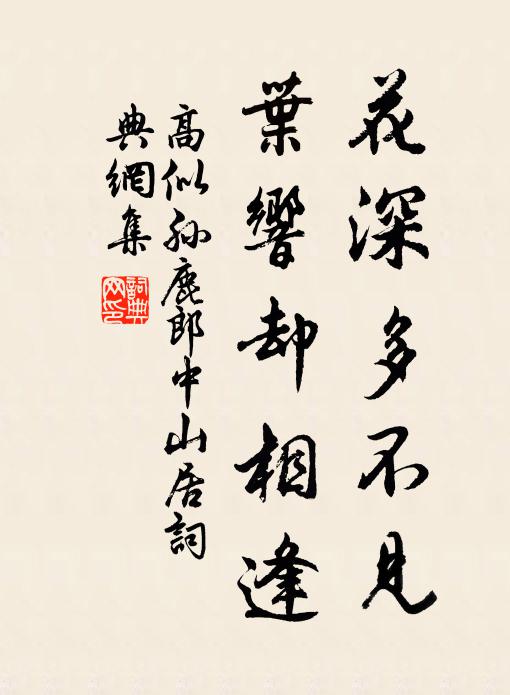 花深多不見
葉響却相逢
高似孫鹿郎中山居詞
典網集
詞典
网印